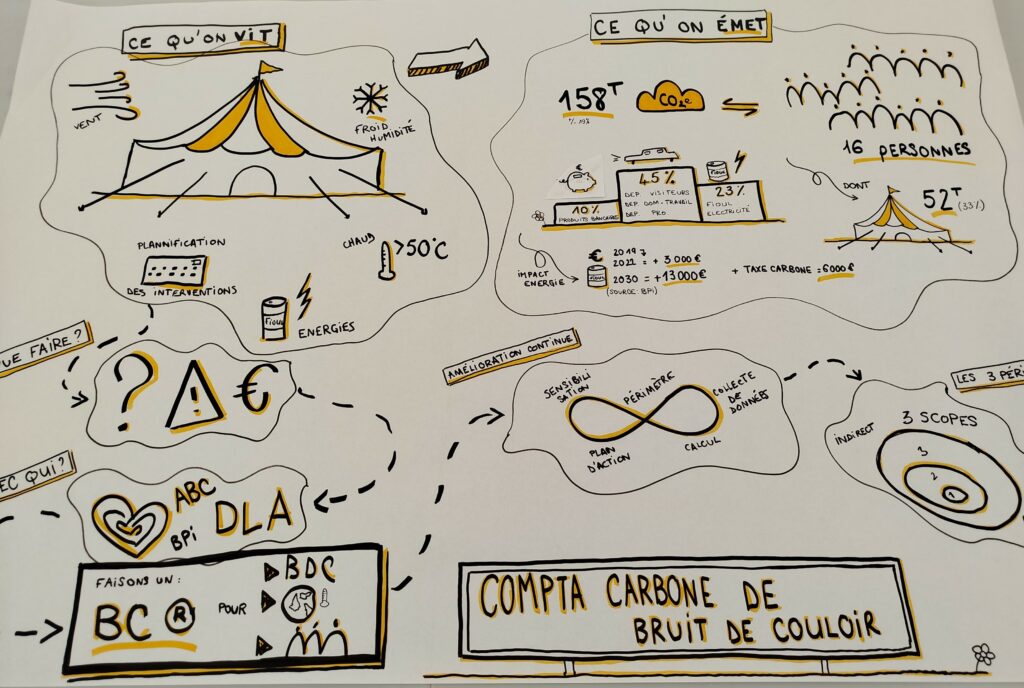 CE QU'ON VIT
VENT
FROID
HUMIDITÉ
PLANNIFICATION
DES INTERVENTIONS
CHAUD
>50°C
FIOUL
ENERGIES
CE QU'ON ÉMET
158T
CO2e
16 PERSONNES
DONT
52T
(33%)
10%
PRODUITS BANCAIRES
45%
DEP. VISITEURS
DEP DOM-TRAVAIL
DEP PRO
FIOUL
23%
FIOUL
ELECTRICITÉ
IMPACT
ENERGIE
€ 2019
2021 = + 3 000 €
2030 = +13000€
(SOURCE: BPi)
+ TAXE CARBONE = 6000 €
UE FAIRE?
? ! €
EC QUI?
ABC
BPi
DLA
FAISONS UN :
BC R POUR
BDC
AMÉLIORATION CONTINUE
SENSIBILI
SATION
PÉRIMÈTRE
COLLECTE
DE
DONNÉES
PLAN
D'ACTION
CALCUL
LES 3 PÉRI
3 SCOPES
INDIRECT
3
2
1
COMPTA CARBONE DE
BRUIT DE COULOIR